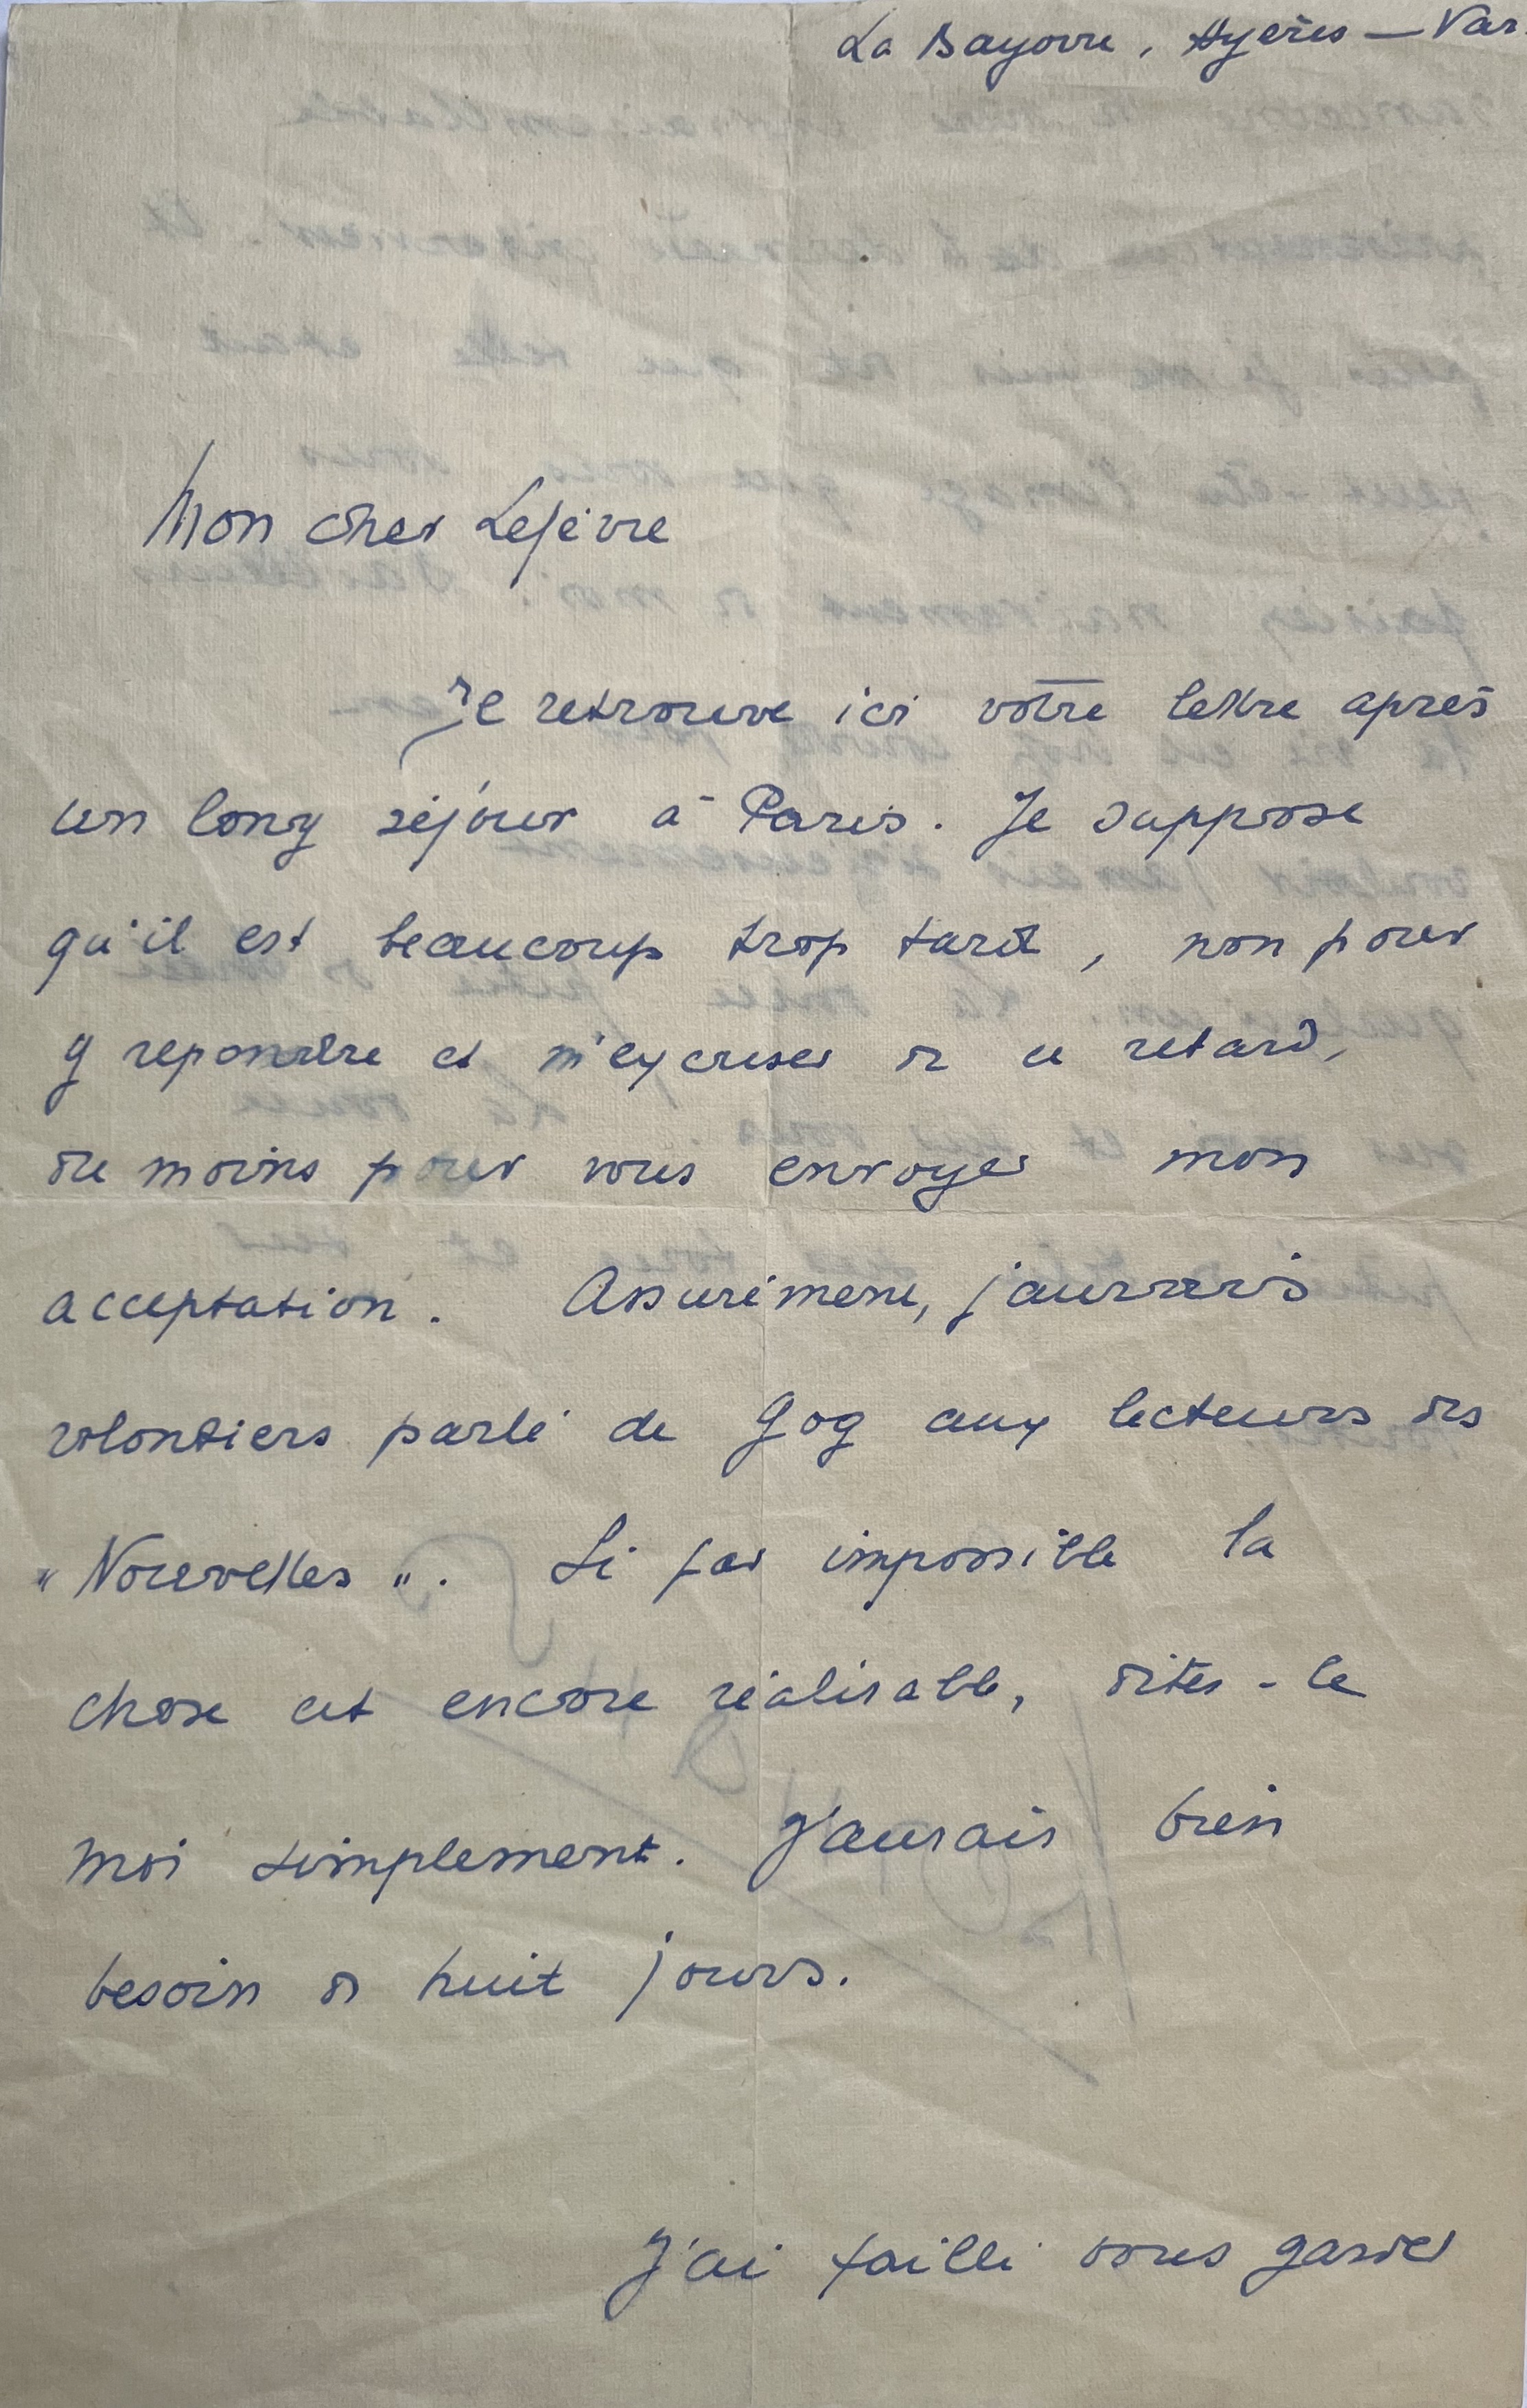 La Bayorre, Hyères — Var.
Mon cher Lefèvre
Je retrouve ici votre lettre après
un long séjour à Paris. Je suppose
qu'il est beaucoup trop tard, non pour
y repondre et m'excuser de ce retard,
du moins pour vous envoyer mon
acceptation. Assurément, j'aurais
volontiers parlé de Gog aux lecteurs des
"Nouvelles". Si par impossible la
chose est encore réalisable, dites-le
moi simplement. J'aurais bien
besoin de huit jours.
J'ai failli vous garder